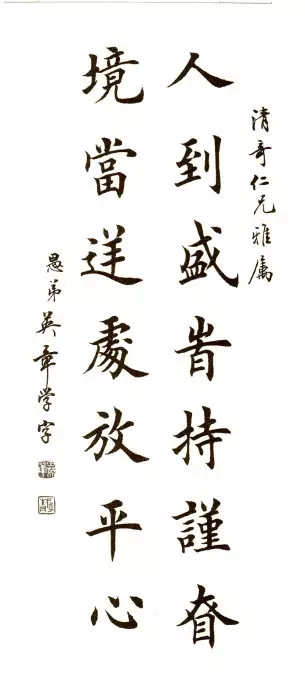 清奇仁兄雅属
人到盛旹持謹眘
境當逆處放平心
愚弟英章学字